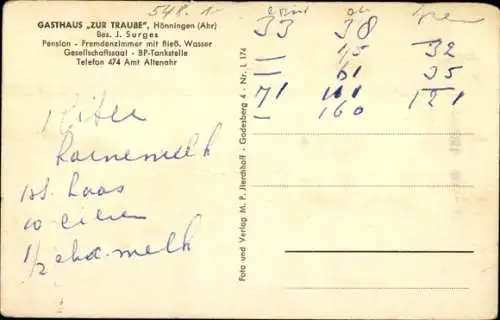 548.1-
GASTHAUS „ZUR TRAUBE", Hönningen (Ahr)
Bes. J. Surges
Pension - Fremdenzimmer mit fließ. Wasser
Gesellschaftssaal - BP-Tankstelle
Telefon 474 Amt Altenahr
1 liter
karnemelk
1 st. kaas
10 eieren
1/2 choc. melk
Foto und Verlag M. P. Jierchhoff - Godesberg 4 - Nr. L 174
33 38
— 45 32
— 61 35
71 161 121
— 160